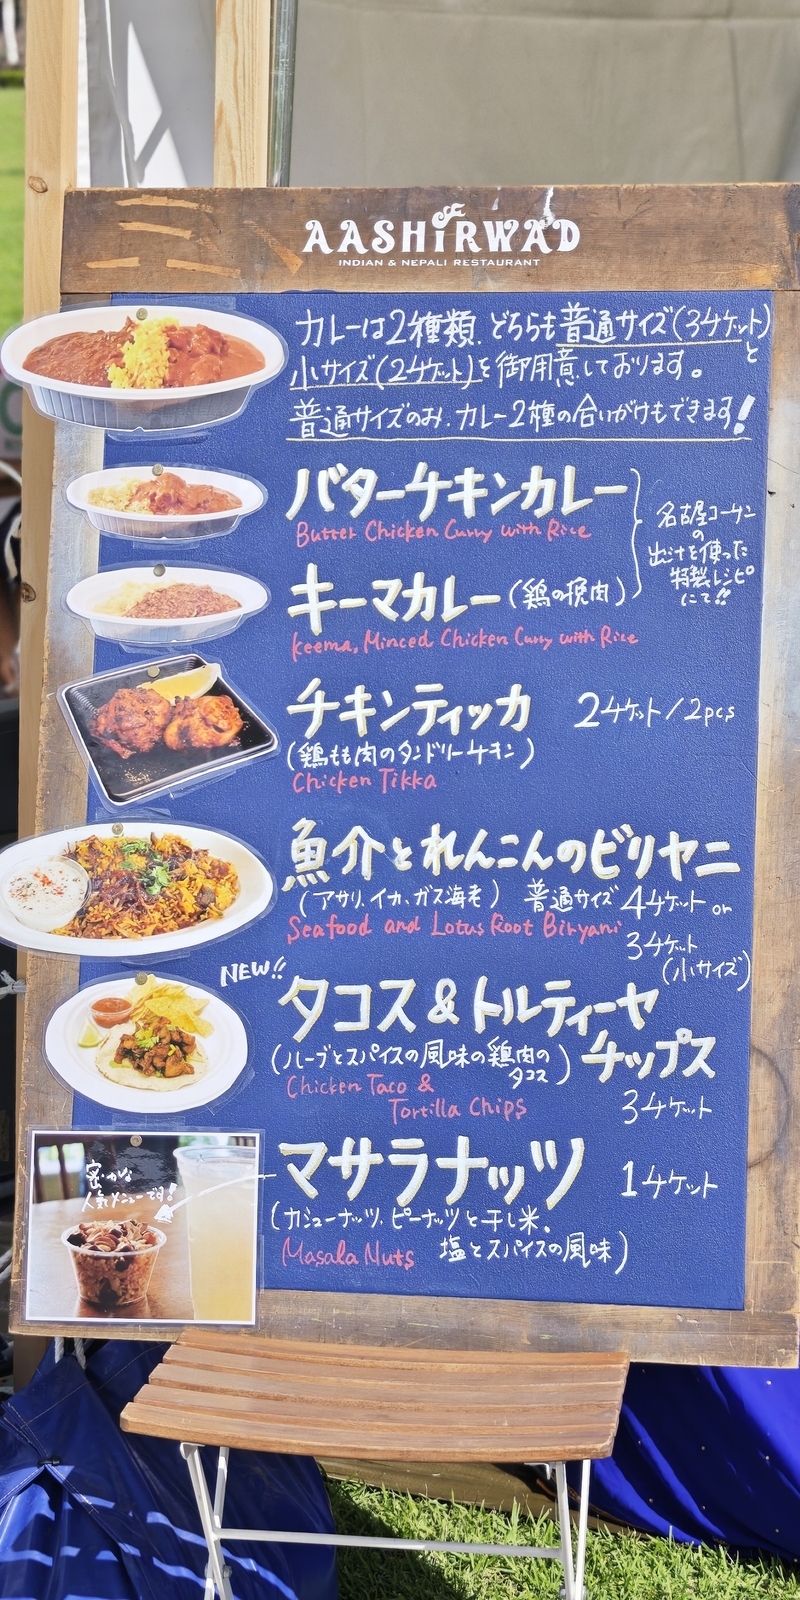 AASHiRWAD
INDIAN & NEPALI RESTAURANT
カレーは2種類、どちらも普通サイズ(3チケット)と
小サイズ(2チケット)を御用意しております。
普通サイズのみ、カレー2種の合いがけもできます!
バターチキンカレー
Butter Chicken Curry with Rice
名古屋コーチン
の
出汁を使った
特製レシピ
にて!!
キーマカレー(鶏の挽肉)
Keema, Minced Chicken Curry with Rice
チキンティッカ 2チケット/2pcs
(鶏もも肉のタンドリーチキン)
Chicken Tikka
魚介とれんこんのビリヤニ
(アサリ、イカ、ガス海老) 普通サイズ 4チケット or
Seafood and Lotus Root Biryani
3チケット
(小サイズ)
NEW!!
タコス & トルティーヤ
チップス
(ハーブとスパイスの風味の鶏肉の
タコス)
Chicken Taco &
Tortilla Chips
3チケット
マサラナッツ 1チケット
密かな
人気メニューです!
(カシューナッツ、ピーナッツと干し米、
Masala Nuts 塩とスパイスの風味)